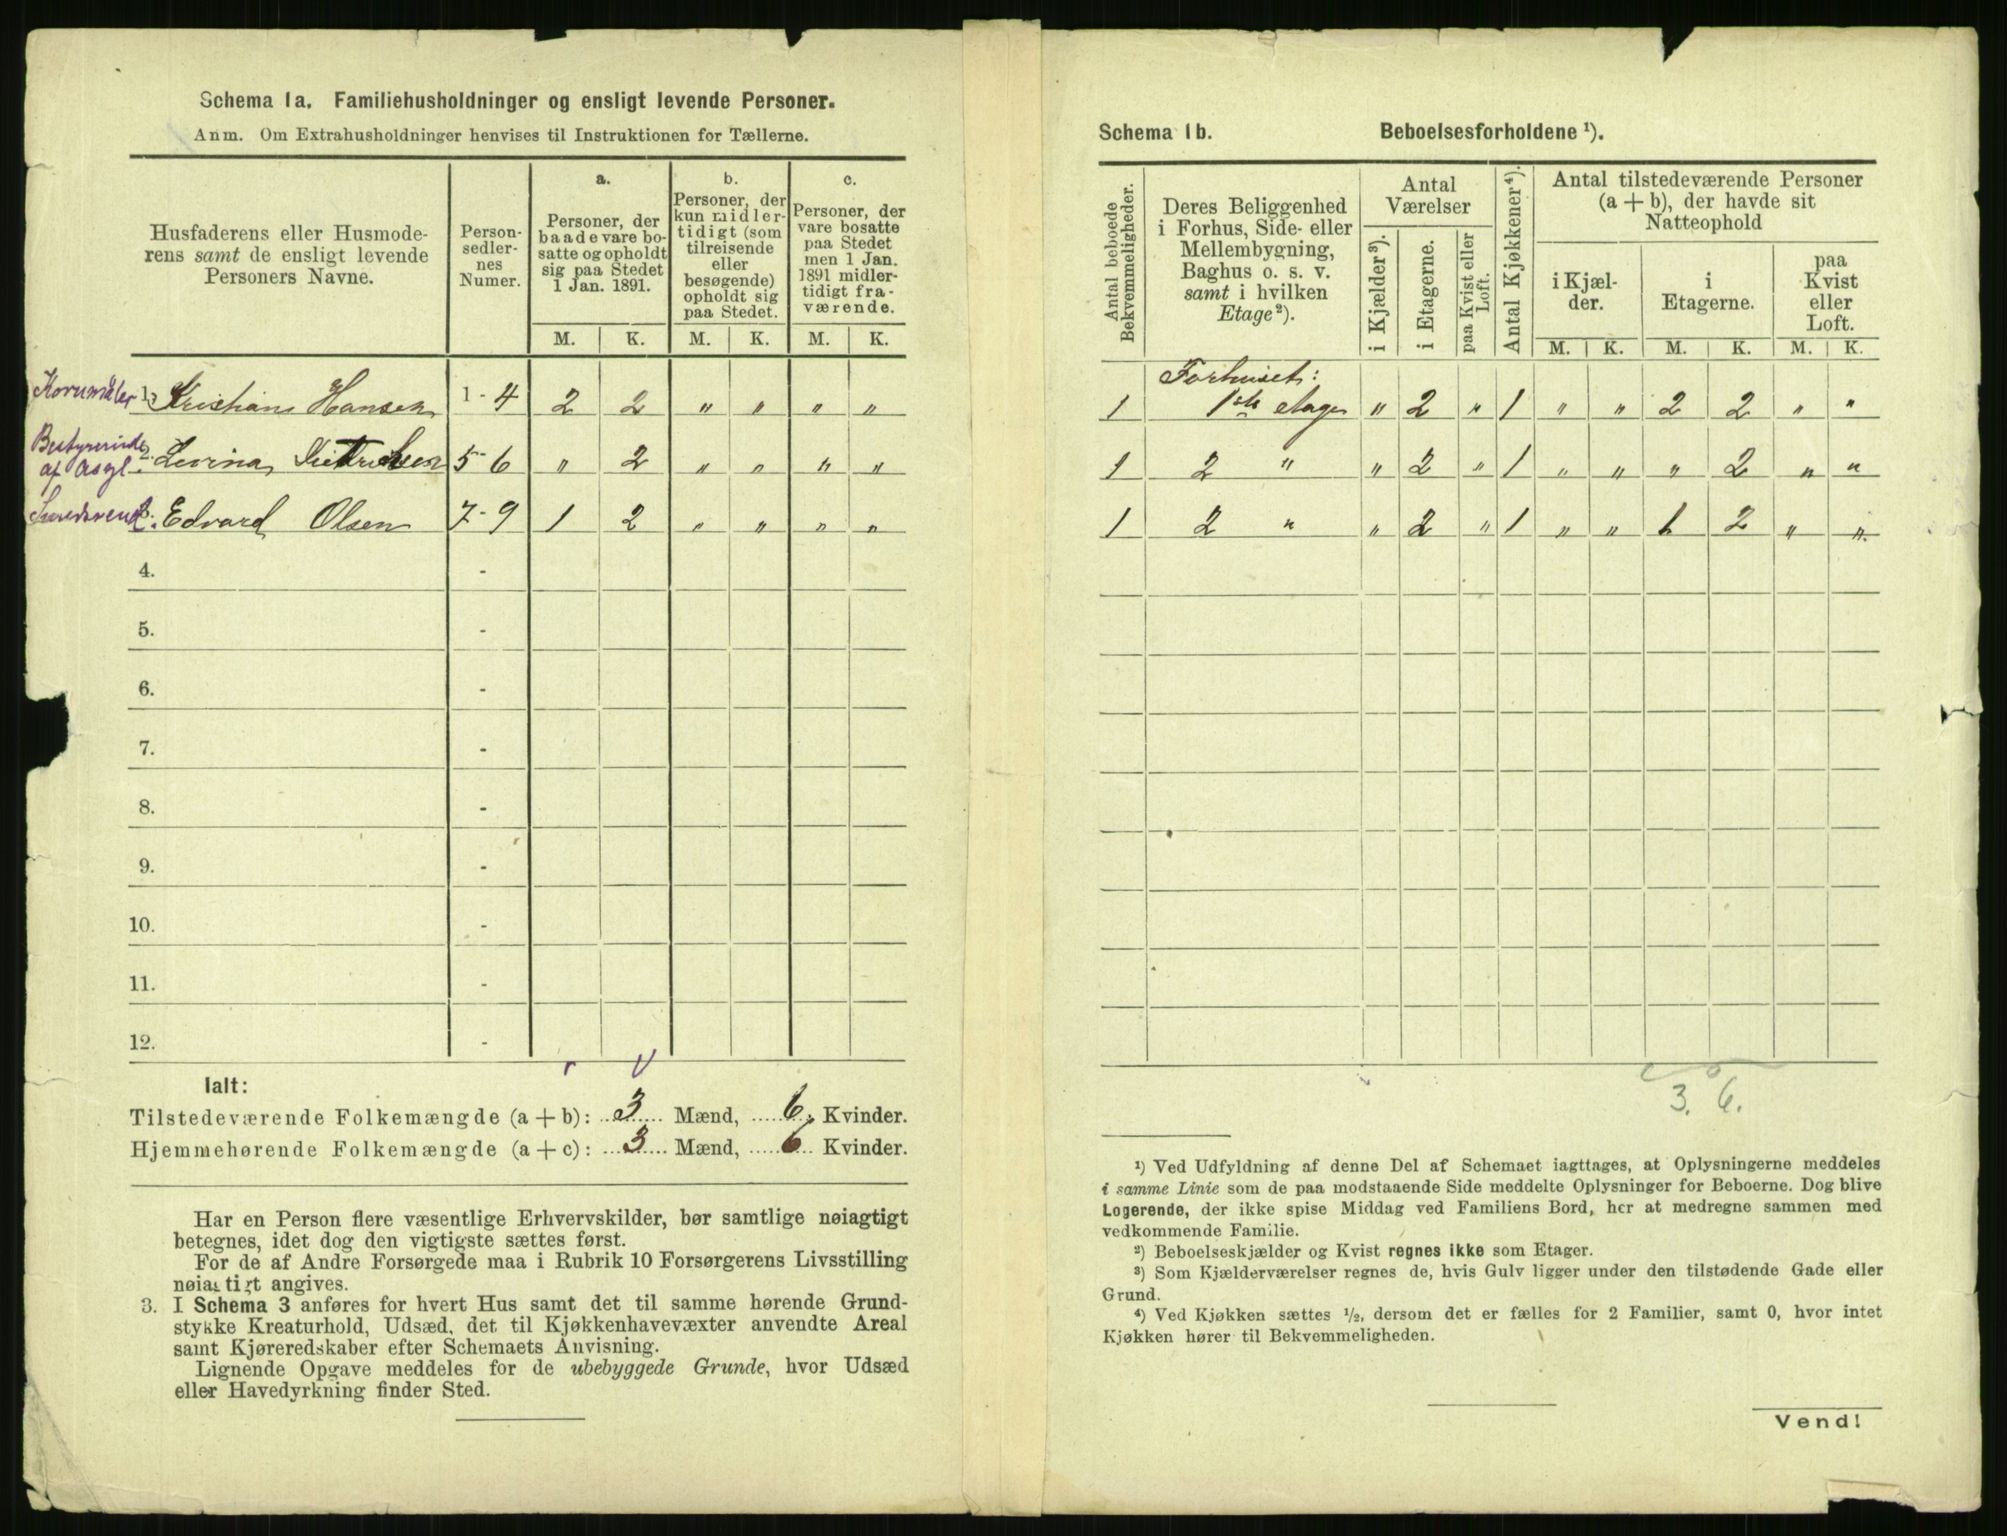 Schema 1a. Familiehusholdninger og ensligt levende Personer.
Anm. Om Extrahusholdninger henvises til Instruktionen for Tællerne.
Husfaderens eller Husmoderens samt de ensligt levende Personers Navne.
Person-sedler-nes Numer.
a. Personer, der baade vare bosatte og opholdt sig paa Stedet 1 Jan. 1891.
b. Personer, der kun midlertidigt (som tilreisende eller besøgende) opholdt sig paa Stedet.
c. Personer, der vare bosatte paa Stedet men 1 Jan. 1891 midlertidigt fraværende.
M. K. M. K. M. K.
Kornmåler 1. Kristian Hansen 1-4 2 2 " " " "
Bestyrerinde af Asyl 2. Levina 5-6 " 2 " " " "
3. Edvard Olsen 7-9 1 2 " " " "
4. -
5. -
6. -
7. -
8. -
9. -
10. -
11. -
12. -
Ialt:
Tilstedeværende Folkemængde (a + b): 3 Mænd, 6 Kvinder.
Hjemmehørende Folkemængde (a + c): 3 Mænd, 6 Kvinder.
Har en Person flere væsentlige Erhvervskilder, bør samtlige nøiagtigt
betegnes, idet dog den vigtigste sættes først.
For de af Andre Forsørgede maa i Rubrik 10 Forsørgerens Livsstilling
nøiagtigt angives.
3. I Schema 3 anføres for hvert Hus samt det til samme hørende Grund-
stykke Kreaturhold, Udsæd, det til Kjøkkenhavevæxter anvendte Areal
samt Kjøreredskaber efter Schemaets Anvisning.
Lignende Opgave meddeles for de ubebyggede Grunde, hvor Udsæd
eller Havedyrkning finder Sted.
Schema 1b. Beboelsesforholdene ¹).
Antal beboede Bekvemmeligheder.
Deres Beliggenhed i Forhus, Side- eller Mellembygning, Baghus o. s. v. samt i hvilken Etage ²).
Antal Værelser
i Kjælder ³).
i Etagerne.
paa Kvist eller Loft.
Antal Kjøkkener ⁴).
Antal tilstedeværende Personer (a + b), der havde sit Natteophold
i Kjælder.
i Etagerne.
paa Kvist eller Loft.
M. K. M. K. M. K.
Forhuset:
1 1ste etage " 2 " 1 " " 2 2 " "
1 2 " " 2 " 1 " " " 2 " "
1 2 " " 2 " 1 " " 1 2 " "
3. 6.
¹) Ved Udfyldning af denne Del af Schemaet iagttages, at Oplysningerne meddeles
i samme Linie som de paa modstaaende Side meddelte Oplysninger for Beboerne. Dog blive
Logerende, der ikke spise Middag ved Familiens Bord, her at medregne sammen med
vedkommende Familie.
²) Beboelseskjælder og Kvist regnes ikke som Etager.
³) Som Kjælderværelser regnes de, hvis Gulv ligger under den tilstødende Gade eller
Grund.
⁴) Ved Kjøkken sættes ½, dersom det er fælles for 2 Familier, samt 0, hvor intet
Kjøkken hører til Bekvemmeligheden.
Vend!